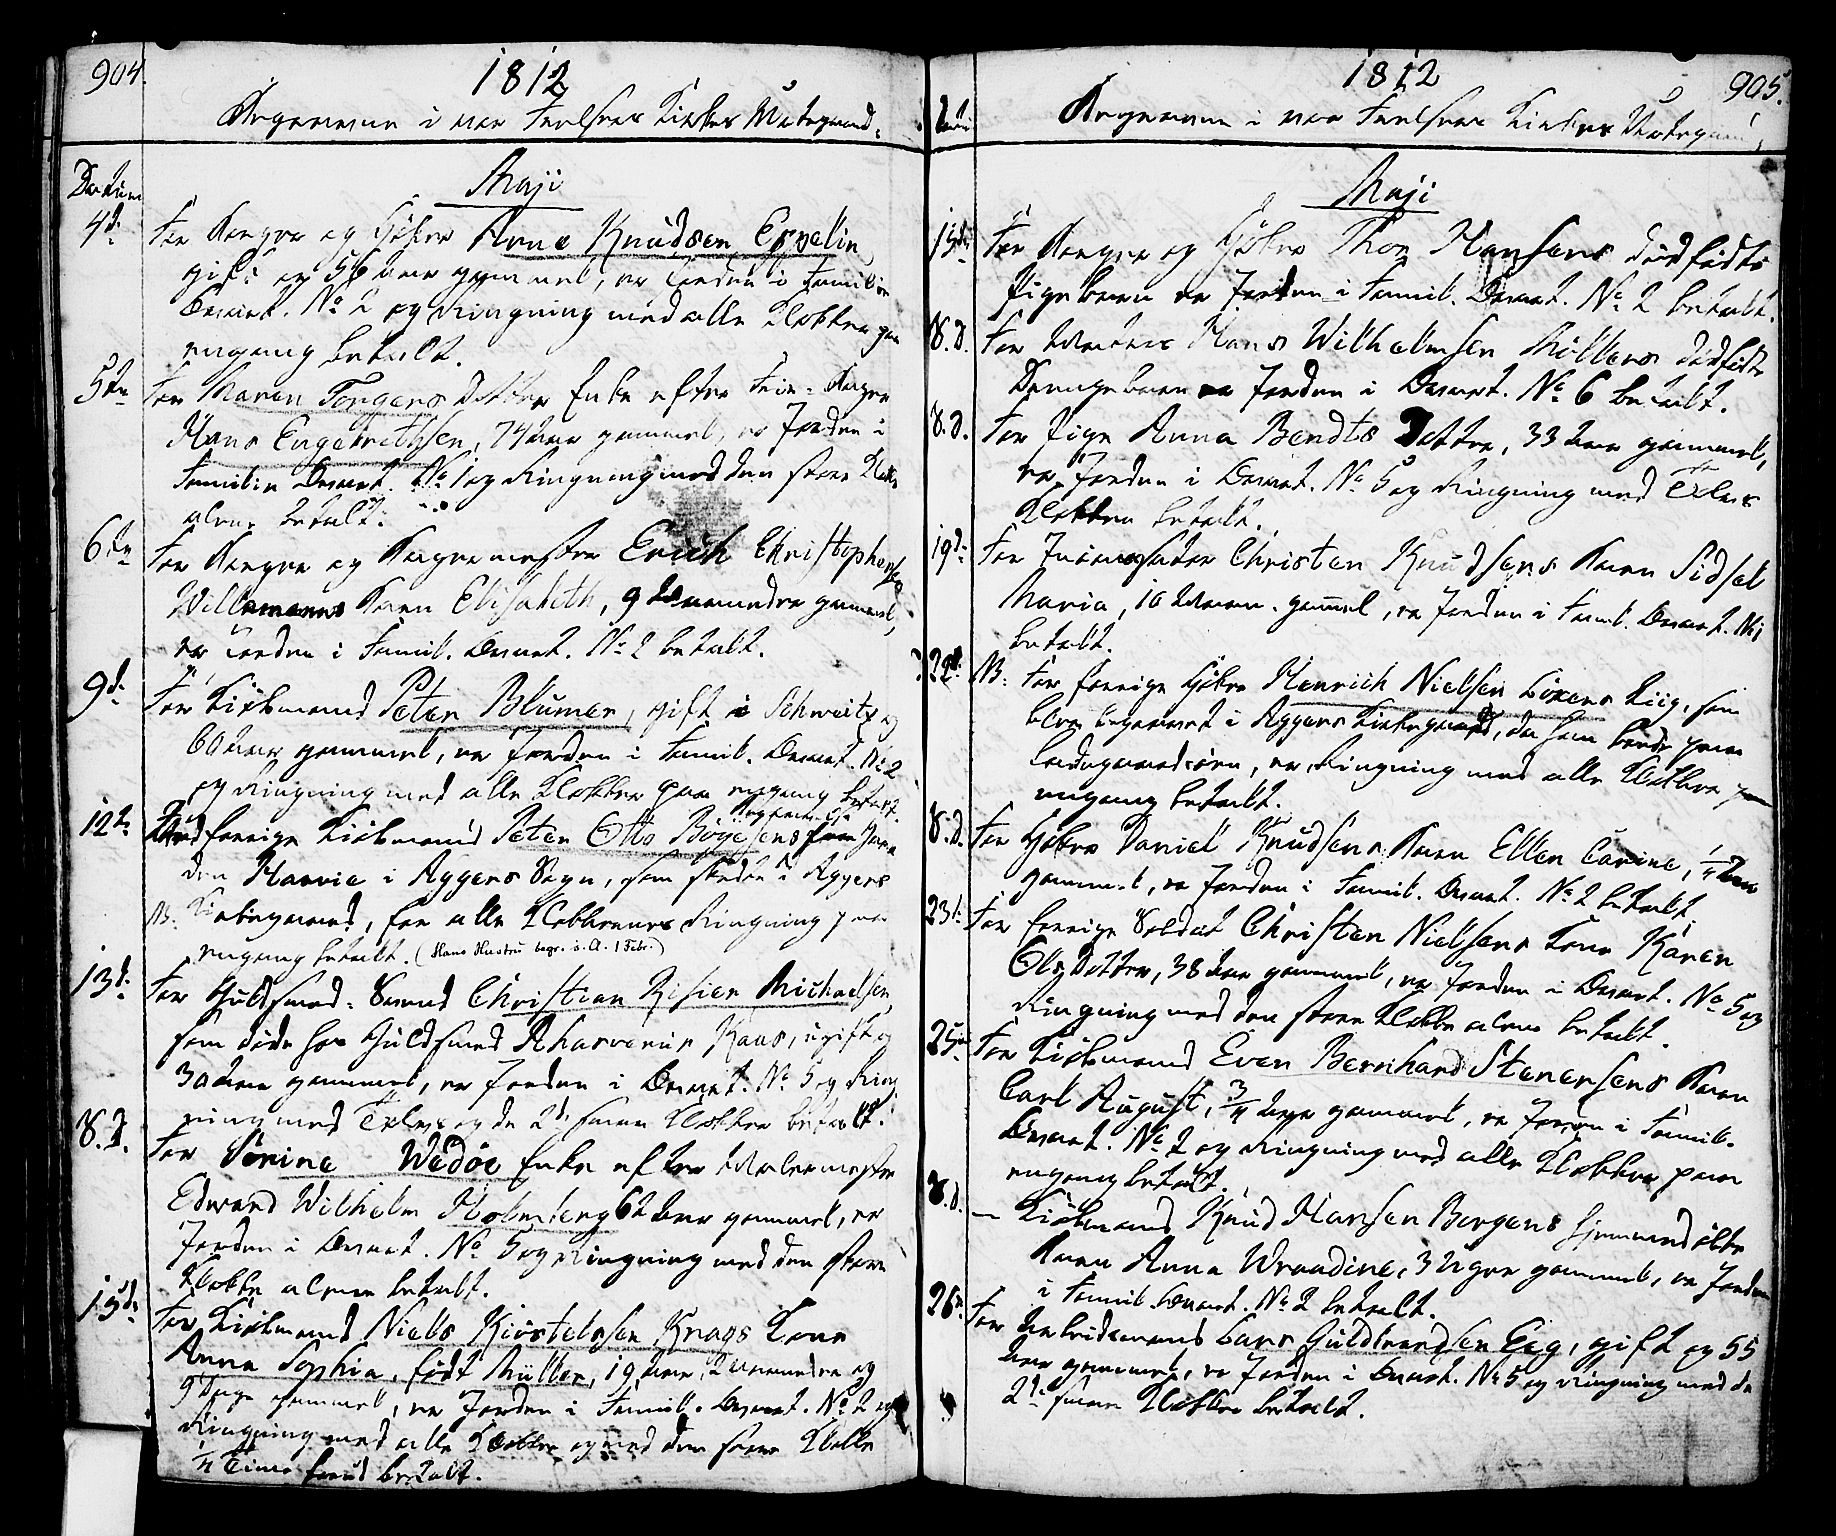 904.
1812
Begravne i vor Frelsers Kirkes Urtegaard.
Datum
Maji
4d: For Borger og Høker Arne Knudsen Espelin,
gift og 56 Aar gammel, er Jorden i Familie
Qvart. No 2 og Ringning med alle Klokker paa
engang betalt.
5te For Maren Torgers Datter Enke efter Borger
Hans Engebrethsen, 74 Aar gammel, er Jorden i
Familie Qvart. No 1 og Ringning med den store Klokke
alene betalt.
6te For Borger og Bagermester Erich Christophersen
Willemanns Barn Elisabeth, 9 Maaneder gammel,
er Jorden i Famil. Qvart. No 2 betalt.
9d: For Kiøbmand Peter Blumer, gift i Schweitz og
60 Aar gammel, er Jorden i Famil. Qvart. No 2
og Ringning med alle Klokker paa engang betalt.
12te forrige Kiøbmand Peter Otto Bøyesens
den i Aggers Sogn, som skede i Aggers
NB. Kirkegaard, for alle Klokkernes Ringning paa
engang betalt. (Hans Hustru begr. s. A. 1 Febr.)
13d: For Guldsmed-Svend Christian Risier Michaelsen,
som døde hos Guldsmed Ahasverus Kaas, ugift og
30 Aar gammel, er Jorden i Qvart. No 5 og Ring
ning med og de 2de smaa Klokker betalt.
8.d. For Sørine Wedøe Enke efter Malermester
Edvard Wilhelm Holmberg 62 Aar gammel, er
Jorden i Qvart. No 5 og Ringning med den store
Klokke alene betalt.
15d: For Kiøbmand Niels Kiøstelssen Krags Kone
Anna Sophia, født Müller, 19 Aar, 2 Maaneder og
9 Dage gammel, er Jorden i Famil. Qvart. No 2 og
Ringning med alle Klokker og med den store Klokke
¼ Time forud betalt.
1812
905.
Begravne i vor Frelsers Kirkes Urtegaard,
Maji
15de For Borger og Høker Thor Hansens dødfødte
Pigebarn er Jorden i Famil. Qvart. No 2 betalt.
8.d. For Hans Wilhelmsen Møllers dødfødte
Drengebarn er Jorden i Qvart. No 6 betalt.
8.d. For Pige Anna Bendts Datter, 33 Aar gammel,
er Jorden i Qvart. No 5 og Ringning med
Klokken betalt.
19d: For Christen Knudsens Barn Sidsel
Maria, 10 Maan. gammel, er Jorden i Famil. Qvart. No 1
betalt.
22d: NB. For forrige Høker Henrich Nielsen Liig, som
blev begravet i Aggers Kirkegaard, da han boede paa
er Ringning med alle Klokker paa
engang betalt.
8.d. For Høker Daniel Knudsens Barn Ellen Carine, ¼ Aar
gammel, er Jorden i Famil. Qvart. No 2 betalt
23d: For forrige Soldat Christen Nielsens Kone Karen
Ols Datter, 38 Aar gammel, er Jorden i Qvart. No 5 og
Ringning med den store Klokke alene betalt.
25de For Kiøbmand Even Bernhard Stenersens Barn
Carl August, ¾ Aar gammel, er Jorden i Famil.
Qvart. No 2 og Ringning med alle Klokker paa
engang betalt.
8.d. — Kiøbmand Knud Hansen Borgens hjemmedøbte
Barn Anna Wraadine, 3 Uger gammel, er Jorden
i Famil. Qvart. No 2 betalt.
26d: For Lars Guldbrandsen Eeg, gift og 55
Aar gammel, er Jorden i Qvart. No 5 og Ringning med de
2de smaa Klokker betalt.